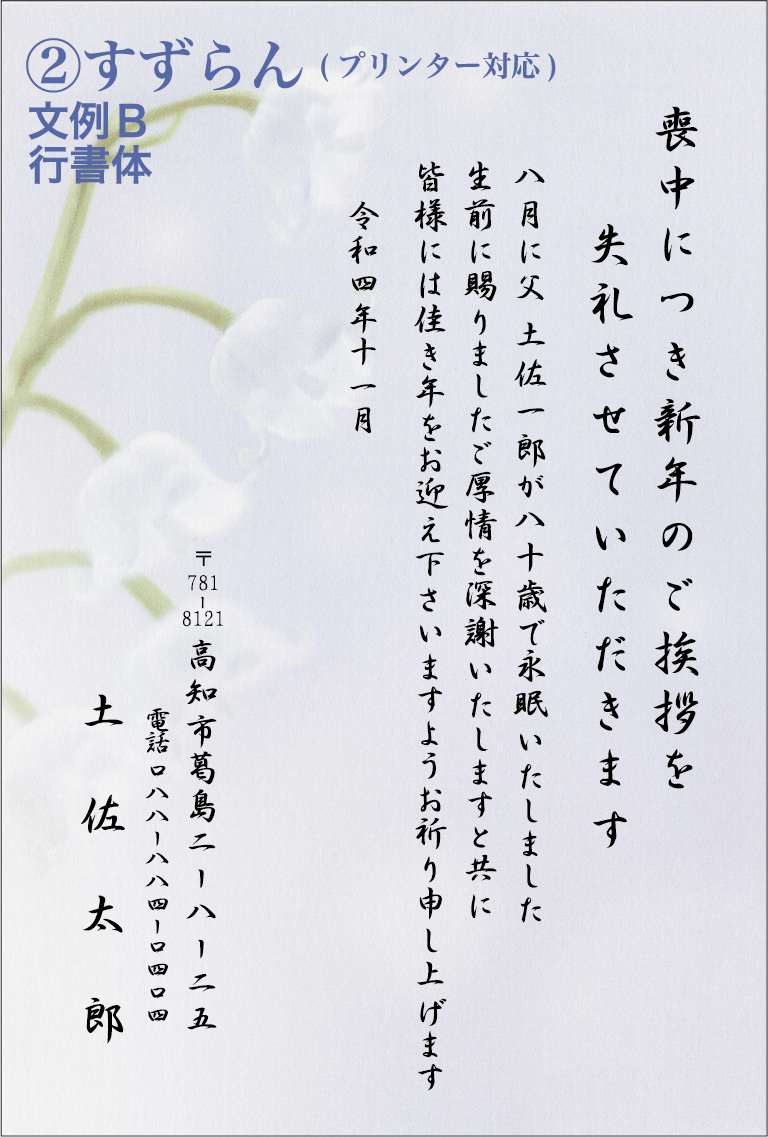 ②すずらん(プリンター対応)
文例B
行書体
喪中につき新年のご挨拶を
失礼させていただきます
八月に父 土佐一郎が八十歳で永眠いたしました
生前に賜りましたご厚情を深謝いたしますと共に
皆様には佳き年をお迎え下さいますようお祈り申し上げます
令和四年十一月
〒781-8121 高知市葛島二ー八ー二五
電話 〇八八ー八八四ー〇四〇四
土佐太郎